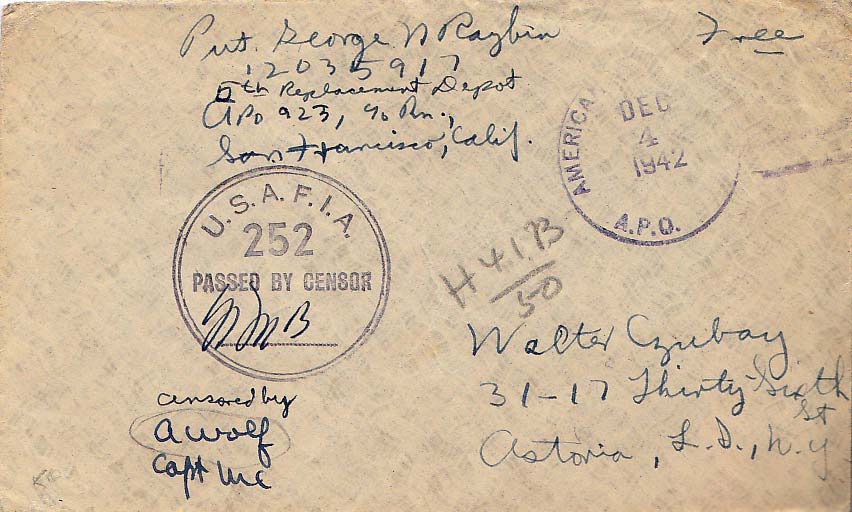 Pvt. George N Raybin
Free
12035917
5th Replacement Depot
APO 923, c/o P.M.,
San Francisco, Calif.
AMERICAN
DEC
4
1942
A.P.O.
U.S.A.F.I.A.
252
PASSED BY CENSOR
H 41.B
50
Walter Czubay
31-17 Thirty-Sixth
St
Astoria, L.I., N.Y
censored by
A Wolf
Capt MC